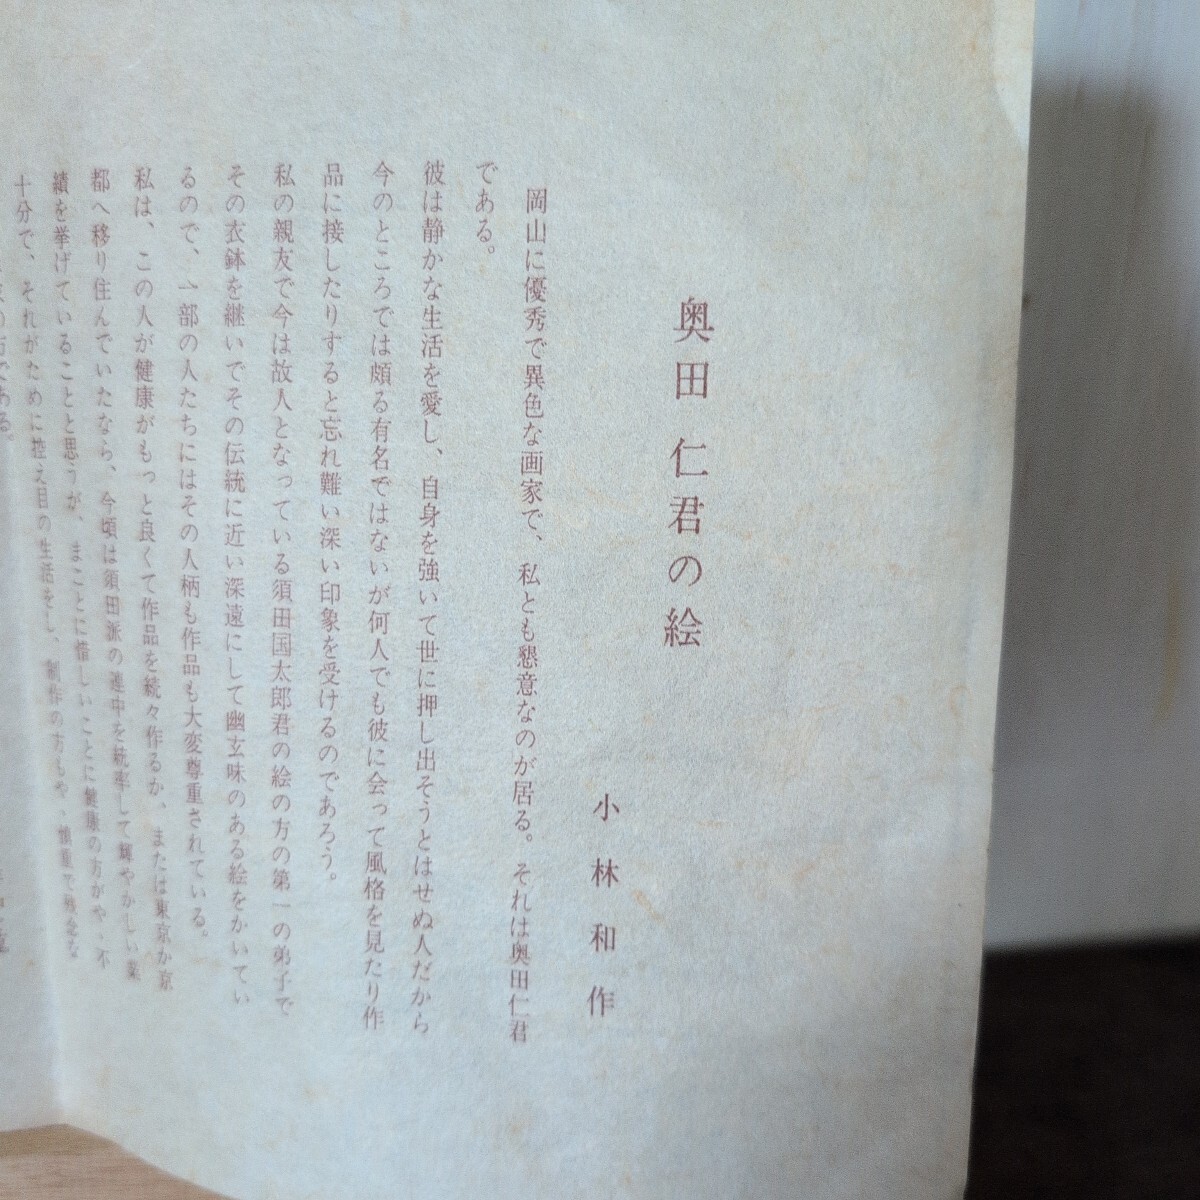 奥田仁君の絵
小林和作
岡山に優秀で異色な画家で、私とも懇意なのが居る。それは奥田仁君
である。
彼は静かな生活を愛し、自身を強いて世に押し出そうとはせぬ人だから
今のところでは頗る有名ではないが何人でも彼に会って風格を見たり作
品に接したりすると忘れ難い深い印象を受けるのであろう。
私の親友で今は故人となっている須田国太郎君の絵の方の第一の弟子で
その衣鉢を継いでその伝統に近い深遠にして幽玄味のある絵をかいてい
るので、一部の人たちにはその人柄も作品も大変尊重されている。
私は、この人が健康がもっと良くて作品を続々作るか、または東京か京
都へ移り住んでいたなら、今頃は須田派の連中を統率して輝やかしい業
績を挙げていることと思うが、まことに惜しいことに健康の方がやゝ不
十分で、それがために控え目の生活をし、制作の方もやゝ慎重で残念な
である。